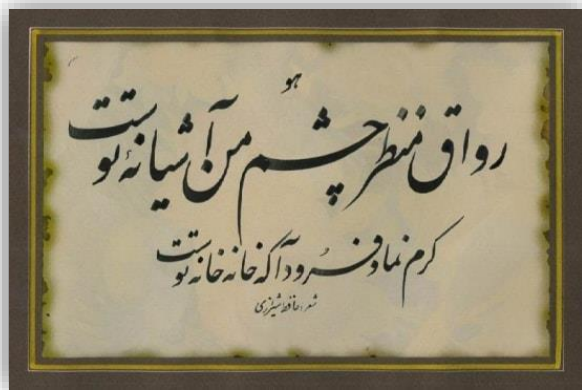 هو
رواق منظر چشم من آشیانهٔ توست
کرم نما و فرود آ که خانه خانه توست
شعر: حافظ شیرازی